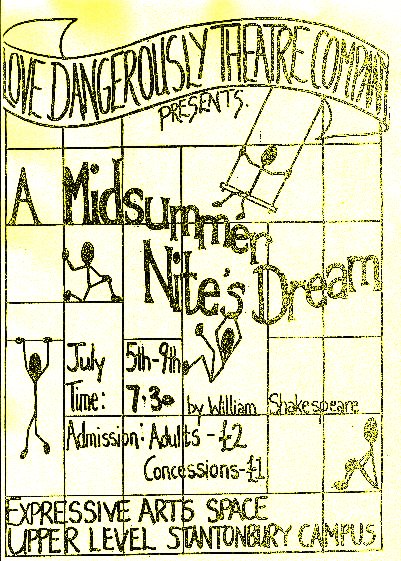 LOVE DANGEROUSLY THEATRE COMPANY
PRESENTS.
A Midsummer
Nite's Dream
July 5th-9th
Time: 7.30
by William Shakespeare
Admission: Adults - £2
Concessions-£1
EXPRESSIVE ARTS SPACE
UPPER LEVEL STANTONBURY CAMPUS